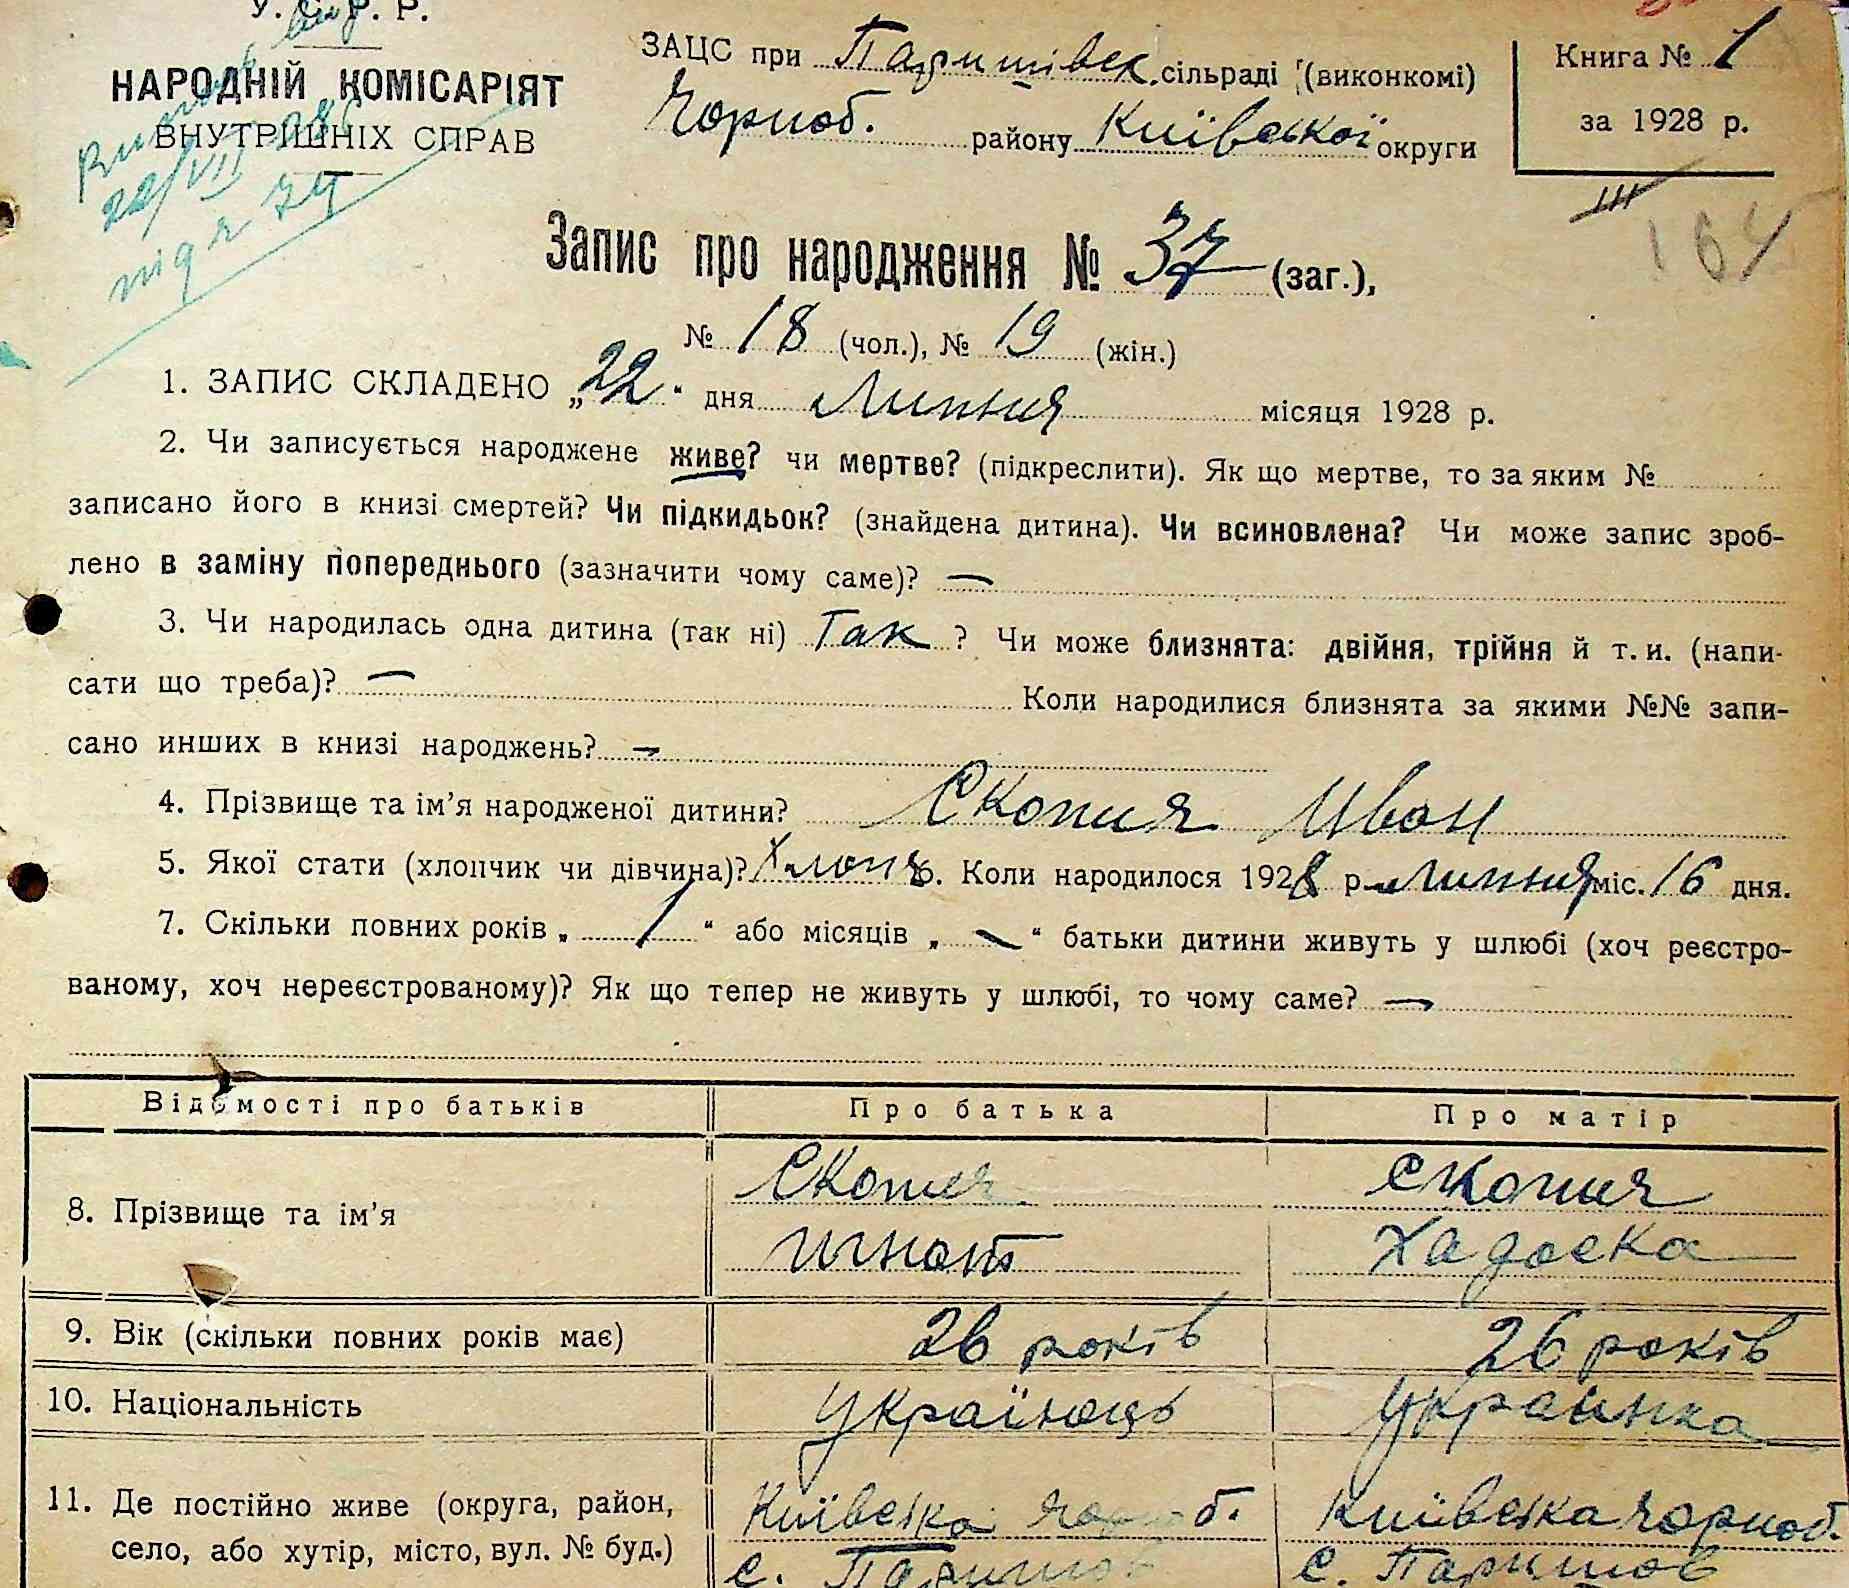 У. С. Р. Р.
НАРОДНІЙ КОМІСАРІЯТ
ВНУТРІШНІХ СПРАВ
22/VII 28
під № 74
ЗАЦС при Паришівск. сільраді (виконкомі)
Чорноб. району Київської округи
Книга № 1
за 1928 р.
164
Запис про народження № 37 (заг.),
№ 18 (чол.), № 19 (жін.)
1. ЗАПИС СКЛАДЕНО „22" дня Липня місяця 1928 р.
2. Чи записується народжене живе? чи мертве? (підкреслити). Як що мертве, то за яким №
записано його в книзі смертей? Чи підкидьок? (знайдена дитина). Чи всиновлена? Чи може запис зроб-
лено в заміну попереднього (зазначити чому саме)? —
3. Чи народилась одна дитина (так ні) Так ? Чи може близнята: двійня, трійня й т. и. (напи-
сати що треба)? — Коли народилися близнята за якими №№ запи-
сано инших в книзі народжень? —
4. Прізвище та ім'я народженої дитини? Скопия Иван
5. Якої стати (хлопчик чи дівчина)? Коли народилося 1928 р. Липня міс. 16 дня.
7. Скільки повних років „ 1 " або місяців „ — " батьки дитини живуть у шлюбі (хоч реєстро-
ваному, хоч нереєстрованому)? Як що тепер не живуть у шлюбі, то чому саме? —
Відомості про батьків Про батька Про матір
8. Прізвище та ім'я Скопия Скопия
Игнат Хадоска
9. Вік (скільки повних років має) 26 років 26 років
10. Національність Українець Украинка
11. Де постійно живе (округа, район, Київска Чорноб. Київска Чорноб.
село, або хутір, місто, вул. № буд.) с. Паришов с. Паришов